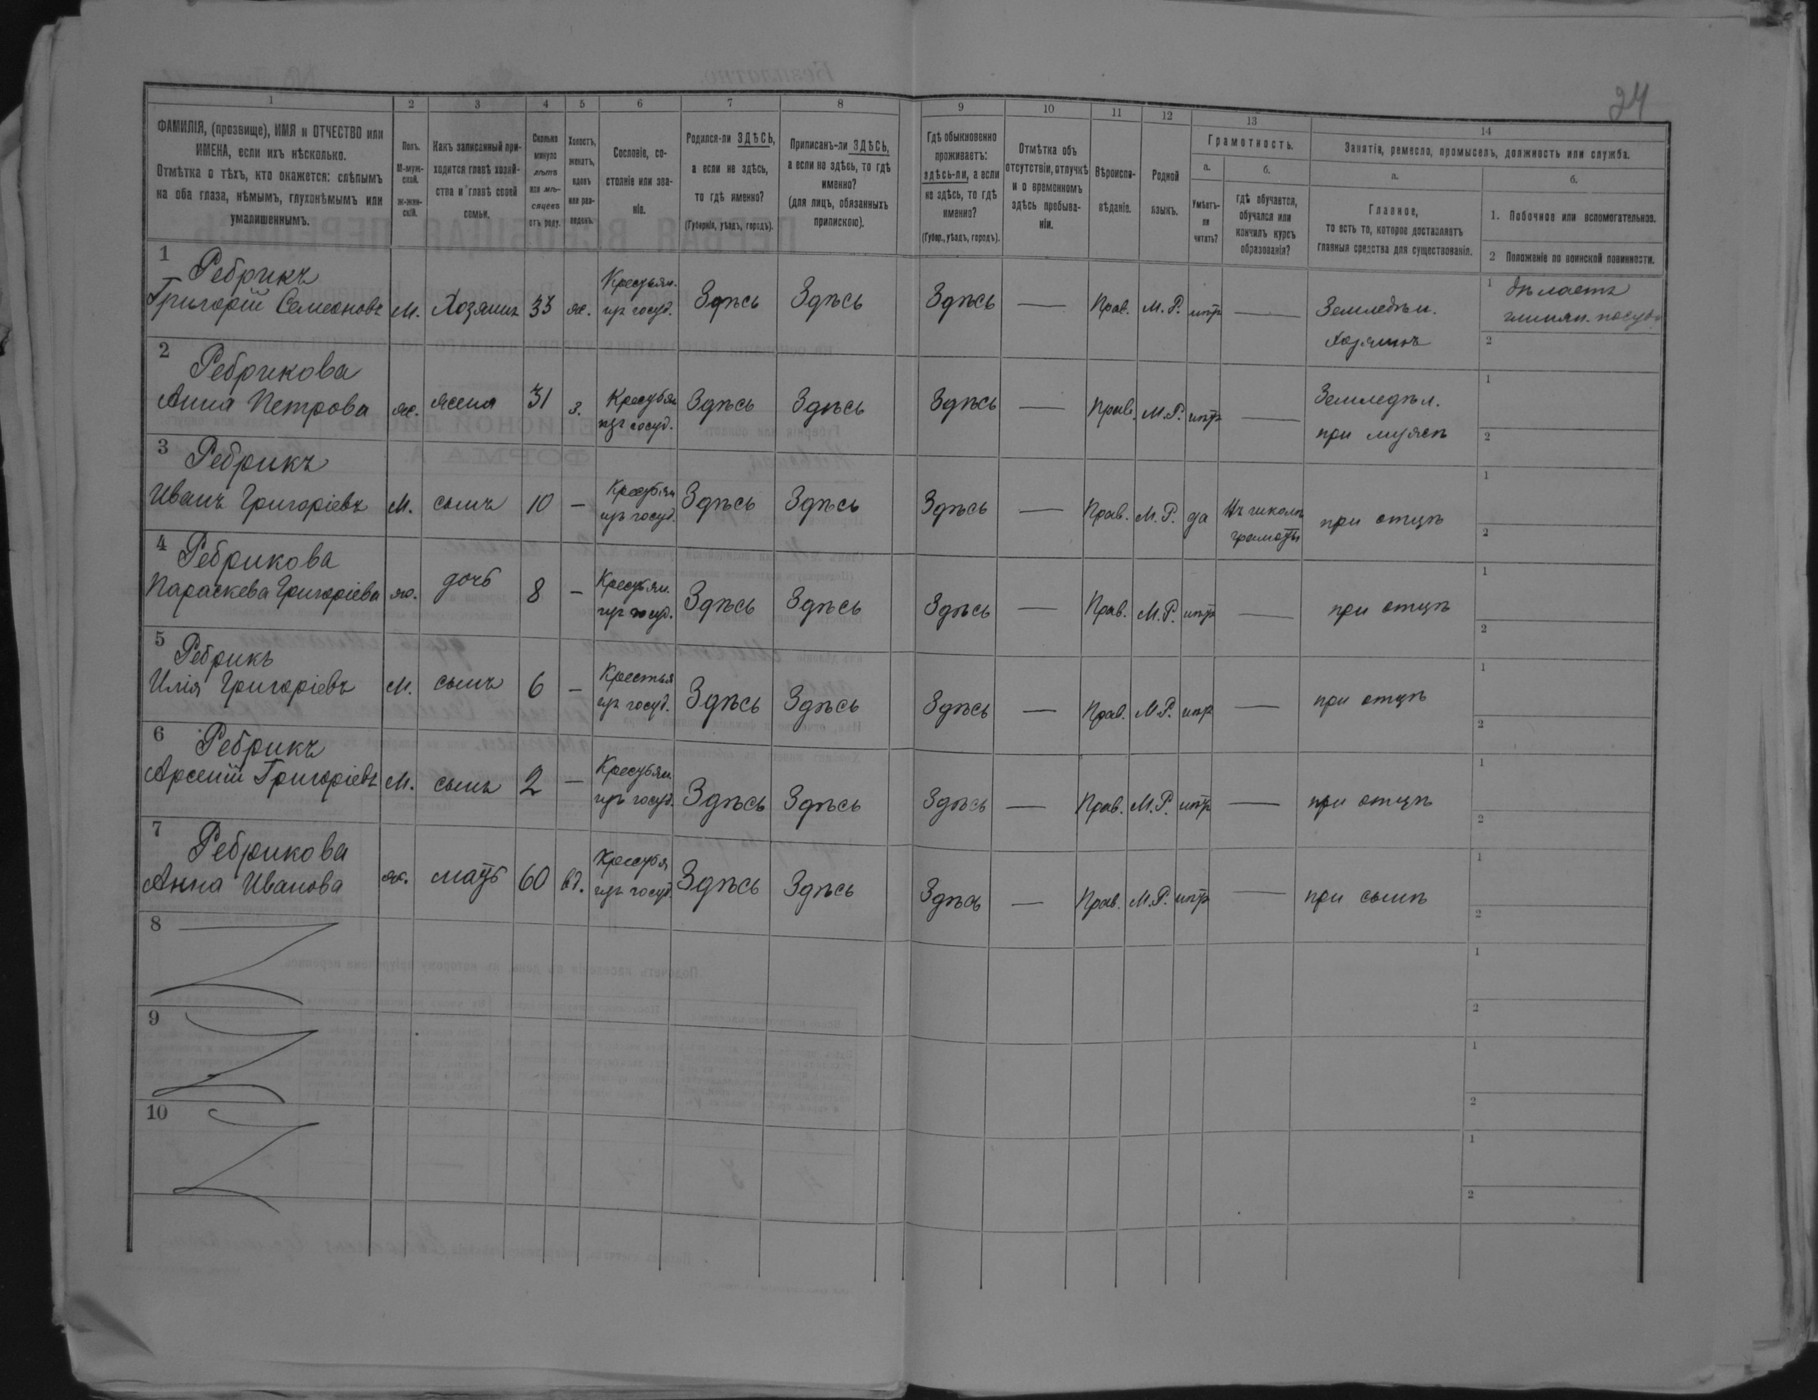 24
1 2 3 4 5 6 7 8 9 10 11 12 13 14
ФАМИЛІЯ, (прозвище), ИМЯ и ОТЧЕСТВО или
ИМЕНА, если ихъ нѣсколько.
Отмѣтка о тѣхъ, кто окажется: слѣпымъ
на оба глаза, нѣмымъ, глухонѣмымъ или
умалишеннымъ.
Полъ.
М-муж-
ской.
ж-жен-
скій.
Какъ записанный при-
ходится главѣ хозяй-
ства и главѣ своей
семьи.
Сколько
минуло
лѣтъ
или мѣ-
сяцевъ
отъ роду.
Холостъ,
женатъ,
вдовъ
или раз-
веденъ.
Сословіе, со-
стояніе или зва-
ніе.
Родился-ли ЗДѢСЬ,
а если не здѣсь,
то гдѣ именно?
(Губернія, уѣздъ, городъ).
Приписанъ-ли ЗДѢСЬ,
а если не здѣсь, то гдѣ
именно?
(для лицъ, обязанныхъ
припискою).
Гдѣ обыкновенно
проживаетъ:
здѣсь-ли, а если
не здѣсь, то гдѣ
именно?
(Губер., уѣздъ, городъ).
Отмѣтка объ
отсутствіи, отлучкѣ
и о временномъ
здѣсь пребыва-
ніи.
Вѣроиспо-
вѣданіе.
Родной
языкъ.
Грамотность.
а.
Умѣетъ-
ли
читать?
б.
гдѣ обучается,
обучался или
кончилъ курсъ
образованія?
Занятіе, ремесло, промыселъ, должность или служба.
а.
Главное,
то есть то, которое доставляетъ
главныя средства для существованія.
б.
1. Побочное или вспомогательное.
2 Положеніе по воинской повинности.
1 Ребрикъ
Григорій Семеоновъ М. Хозяинъ 33 ж. Крестьян. изъ госуд. Здѣсь Здѣсь Здѣсь — Прав. М.Р. нѣтъ — Земледѣл. Хозяинъ 1 дѣлаетъ глинян. посуд. 2
2 Ребрикова
Анна Петрова ж. жена 31 з. Крестьян изъ госуд. Здѣсь Здѣсь Здѣсь — Прав. М.Р. нѣтъ — Земледѣл. при мужѣ 1 2
3 Ребрикъ
Иванъ Григоріевъ М. сынъ 10 — Крестьян изъ госуд. Здѣсь Здѣсь Здѣсь — Прав. М.Р. да въ школѣ грамоты при отцѣ 1 2
4 Ребрикова
Параскева Григоріева ж. дочь 8 — Крестьян. изъ госуд. Здѣсь Здѣсь Здѣсь — Прав. М.Р. нѣтъ — при отцѣ 1 2
5 Ребрикъ
Илія Григоріевъ М. сынъ 6 — Крестья изъ госуд. Здѣсь Здѣсь Здѣсь — Прав. М.Р. нѣтъ — при отцѣ 1 2
6 Ребрикъ
Арсеній Григоріевъ М. сынъ 2 — Крестьян. изъ госуд. Здѣсь Здѣсь Здѣсь — Прав. М.Р. нѣтъ — при отцѣ 1 2
7 Ребрикова
Анна Иванова ж. мать 60 вд. Крестья изъ госуд. Здѣсь Здѣсь Здѣсь — Прав. М.Р. нѣтъ — при сынѣ 1 2
8 1 2
9 1 2
10 1 2